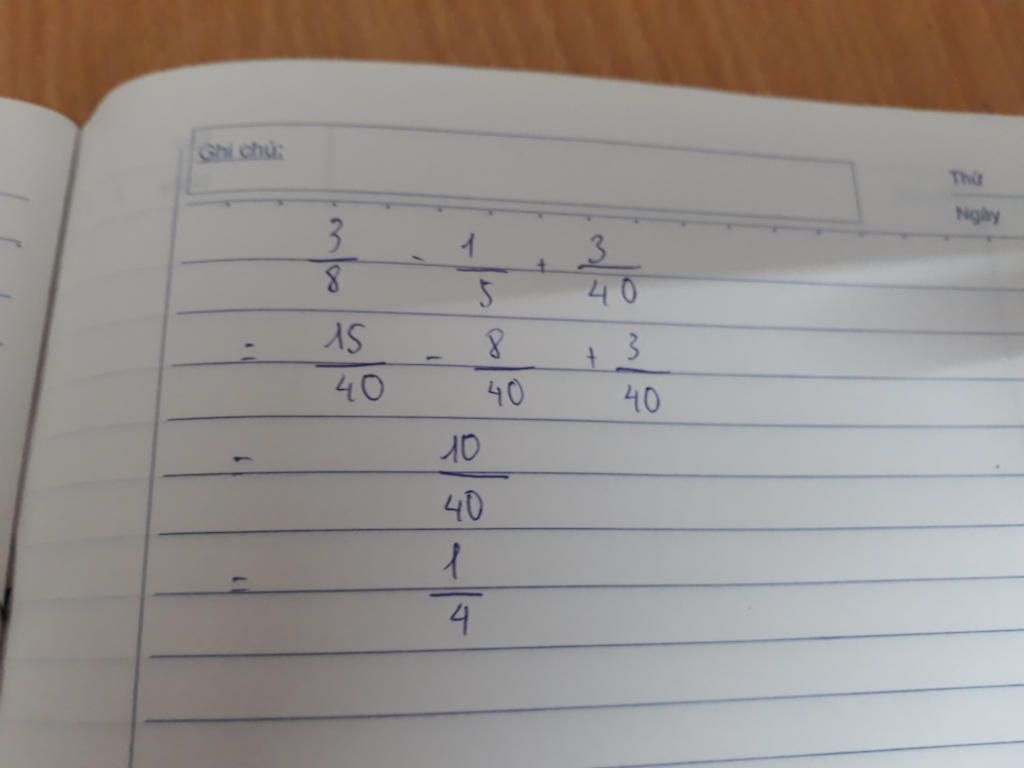 Ghi chú:
Thứ
Ngày
3/8 - 1/5 + 3/40
= 15/40 - 8/40 + 3/40
= 10/40
= 1/4